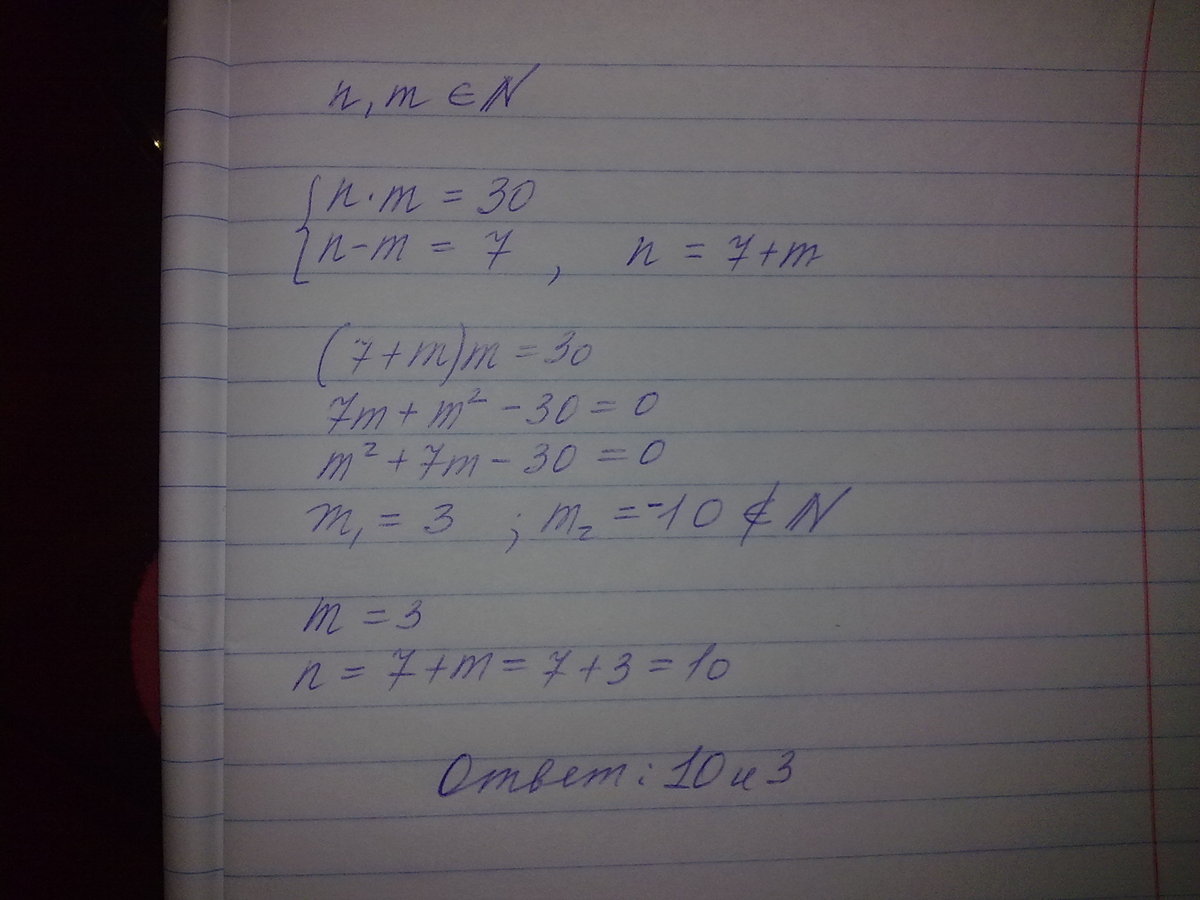 n, m ∈ N
{ n · m = 30
n - m = 7 , n = 7 + m
(7 + m)m = 30
7m + m² - 30 = 0
m² + 7m - 30 = 0
m₁ = 3 ; m₂ = -10 ∉ N
m = 3
n = 7 + m = 7 + 3 = 10
Ответ: 10 и 3